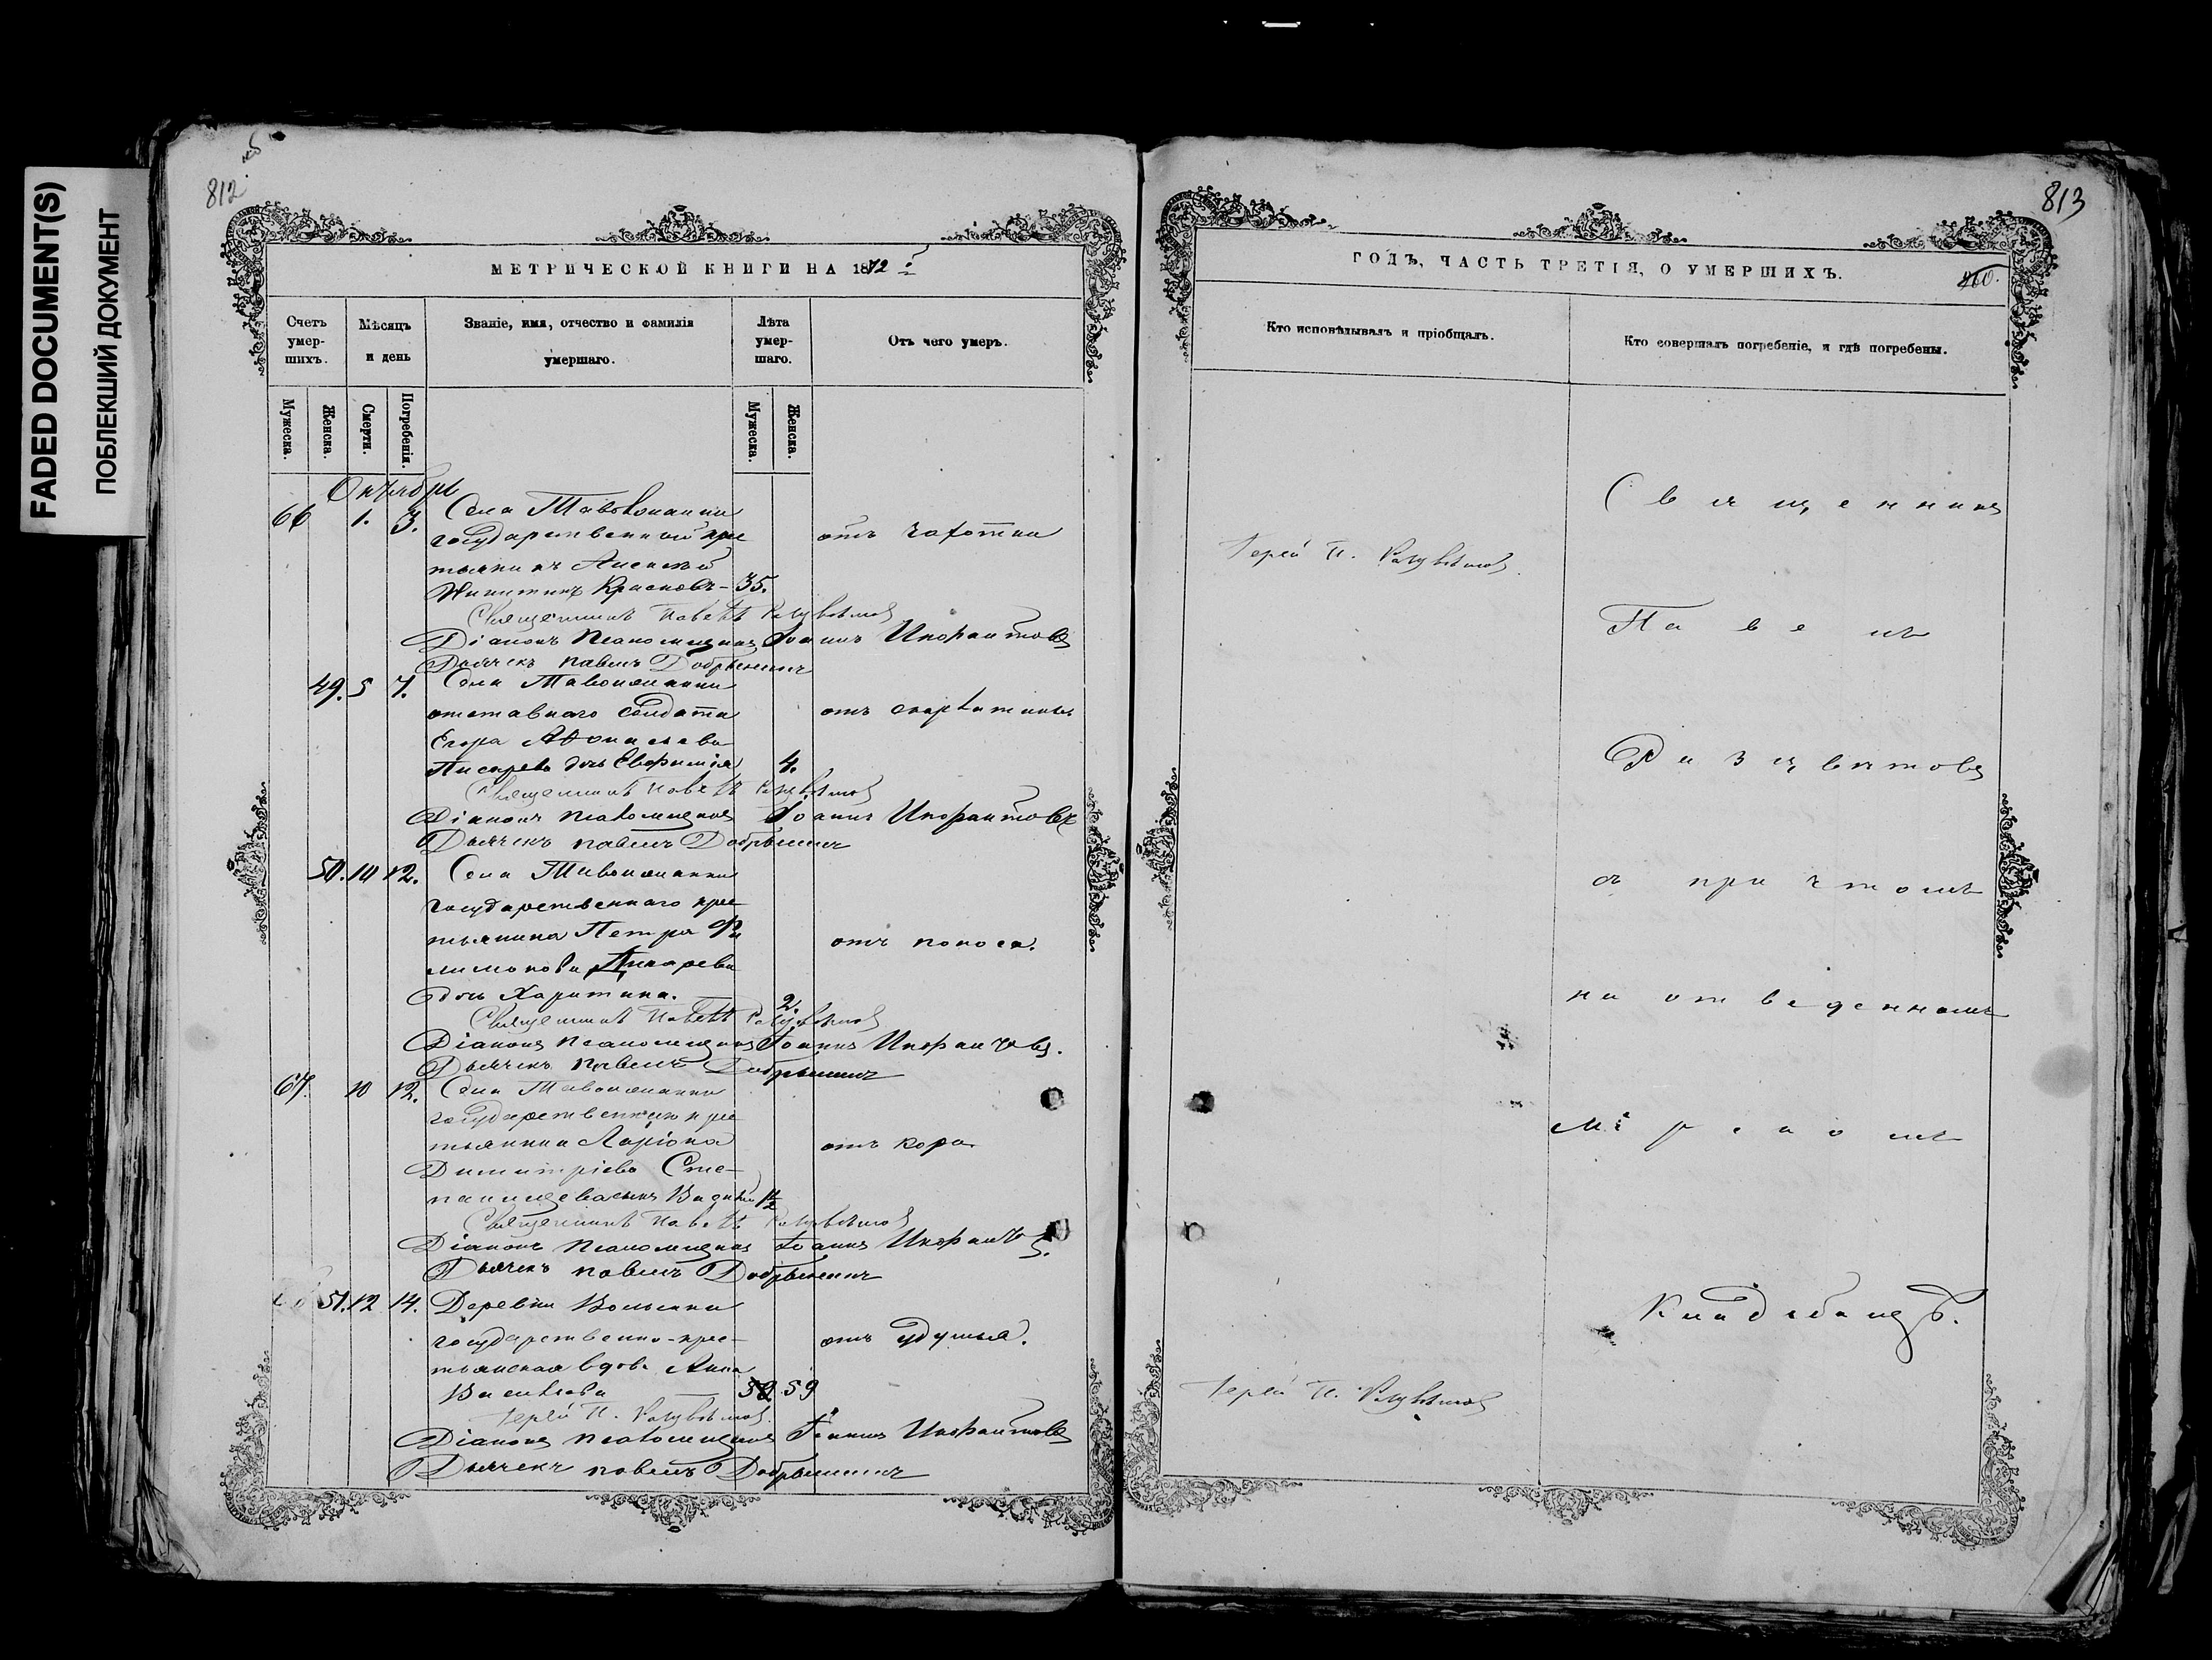 FADED DOCUMENT(S)
ПОБЛЕКШИЙ ДОКУМЕНТ
812
МЕТРИЧЕСКОЙ КНИГИ НА 1872
Счетъ умер-шихъ.
Мѣсяцъ и день
Званіе, имя, отчество и фамилія умершаго.
Лѣта умер-шаго.
Отъ чего умеръ.
Мужеска.
Женска.
Смерти.
Погребенія.
Мужеска.
Женска.
Октябрь
66 1. 3. Села Таволжанки
государственный кре
стьянинъ Алексѣй отъ чахотки
Никитинъ Красновъ - 35.
Священникъ Павелъ Разцвѣтовъ
Діаконъ псаломщикъ Іоаннъ
Дьячекъ Павелъ Добрынинъ
49. 5 7. Села Таволжанки
отставнаго солдата отъ скарлатины
Егора Аѳонасьева
Писарева дочь Евфимія 4.
Священникъ Павелъ Разцвѣтовъ
Діаконъ псаломщикъ Іоаннъ
Дьячекъ Павелъ Добрынинъ
50. 10 12. Села Таволжанки
государственнаго кре
стьянина Петра Фи
лимонова Писарева отъ поноса.
дочь Харитина. 2.
Священникъ Павелъ Разцвѣтовъ
Діаконъ псаломщикъ Іоаннъ
Дьячекъ Павелъ Добрынинъ
67. 10 12. Села Таволжанки
государственнаго кре
стьянина Ларіона отъ кора
Димитріева Сте-
панищева сынъ 1/2
Священникъ Павелъ Разцвѣтовъ
Діаконъ псаломщикъ Іоаннъ
Дьячекъ Павелъ Добрынинъ
51. 12 14. Деревни
государственно-кре-
стьянская вдова Анна отъ удушья.
Васильева 59
Іерей П. Разцвѣтовъ
Діаконъ псаломщикъ Іоаннъ
Дьячекъ Павелъ Добрынинъ
813
ГОДЪ, ЧАСТЬ ТРЕТІЯ, О УМЕРШИХЪ.
Кто исповѣдывалъ и пріобщалъ.
Кто совершалъ погребеніе, и гдѣ погребены.
Священникъ
Іерей П. Разцвѣтовъ
Павелъ
Разцвѣтовъ
съ причтомъ
на отведенномъ
мірскомъ
Кладбищѣ.
Іерей П. Разцвѣтовъ